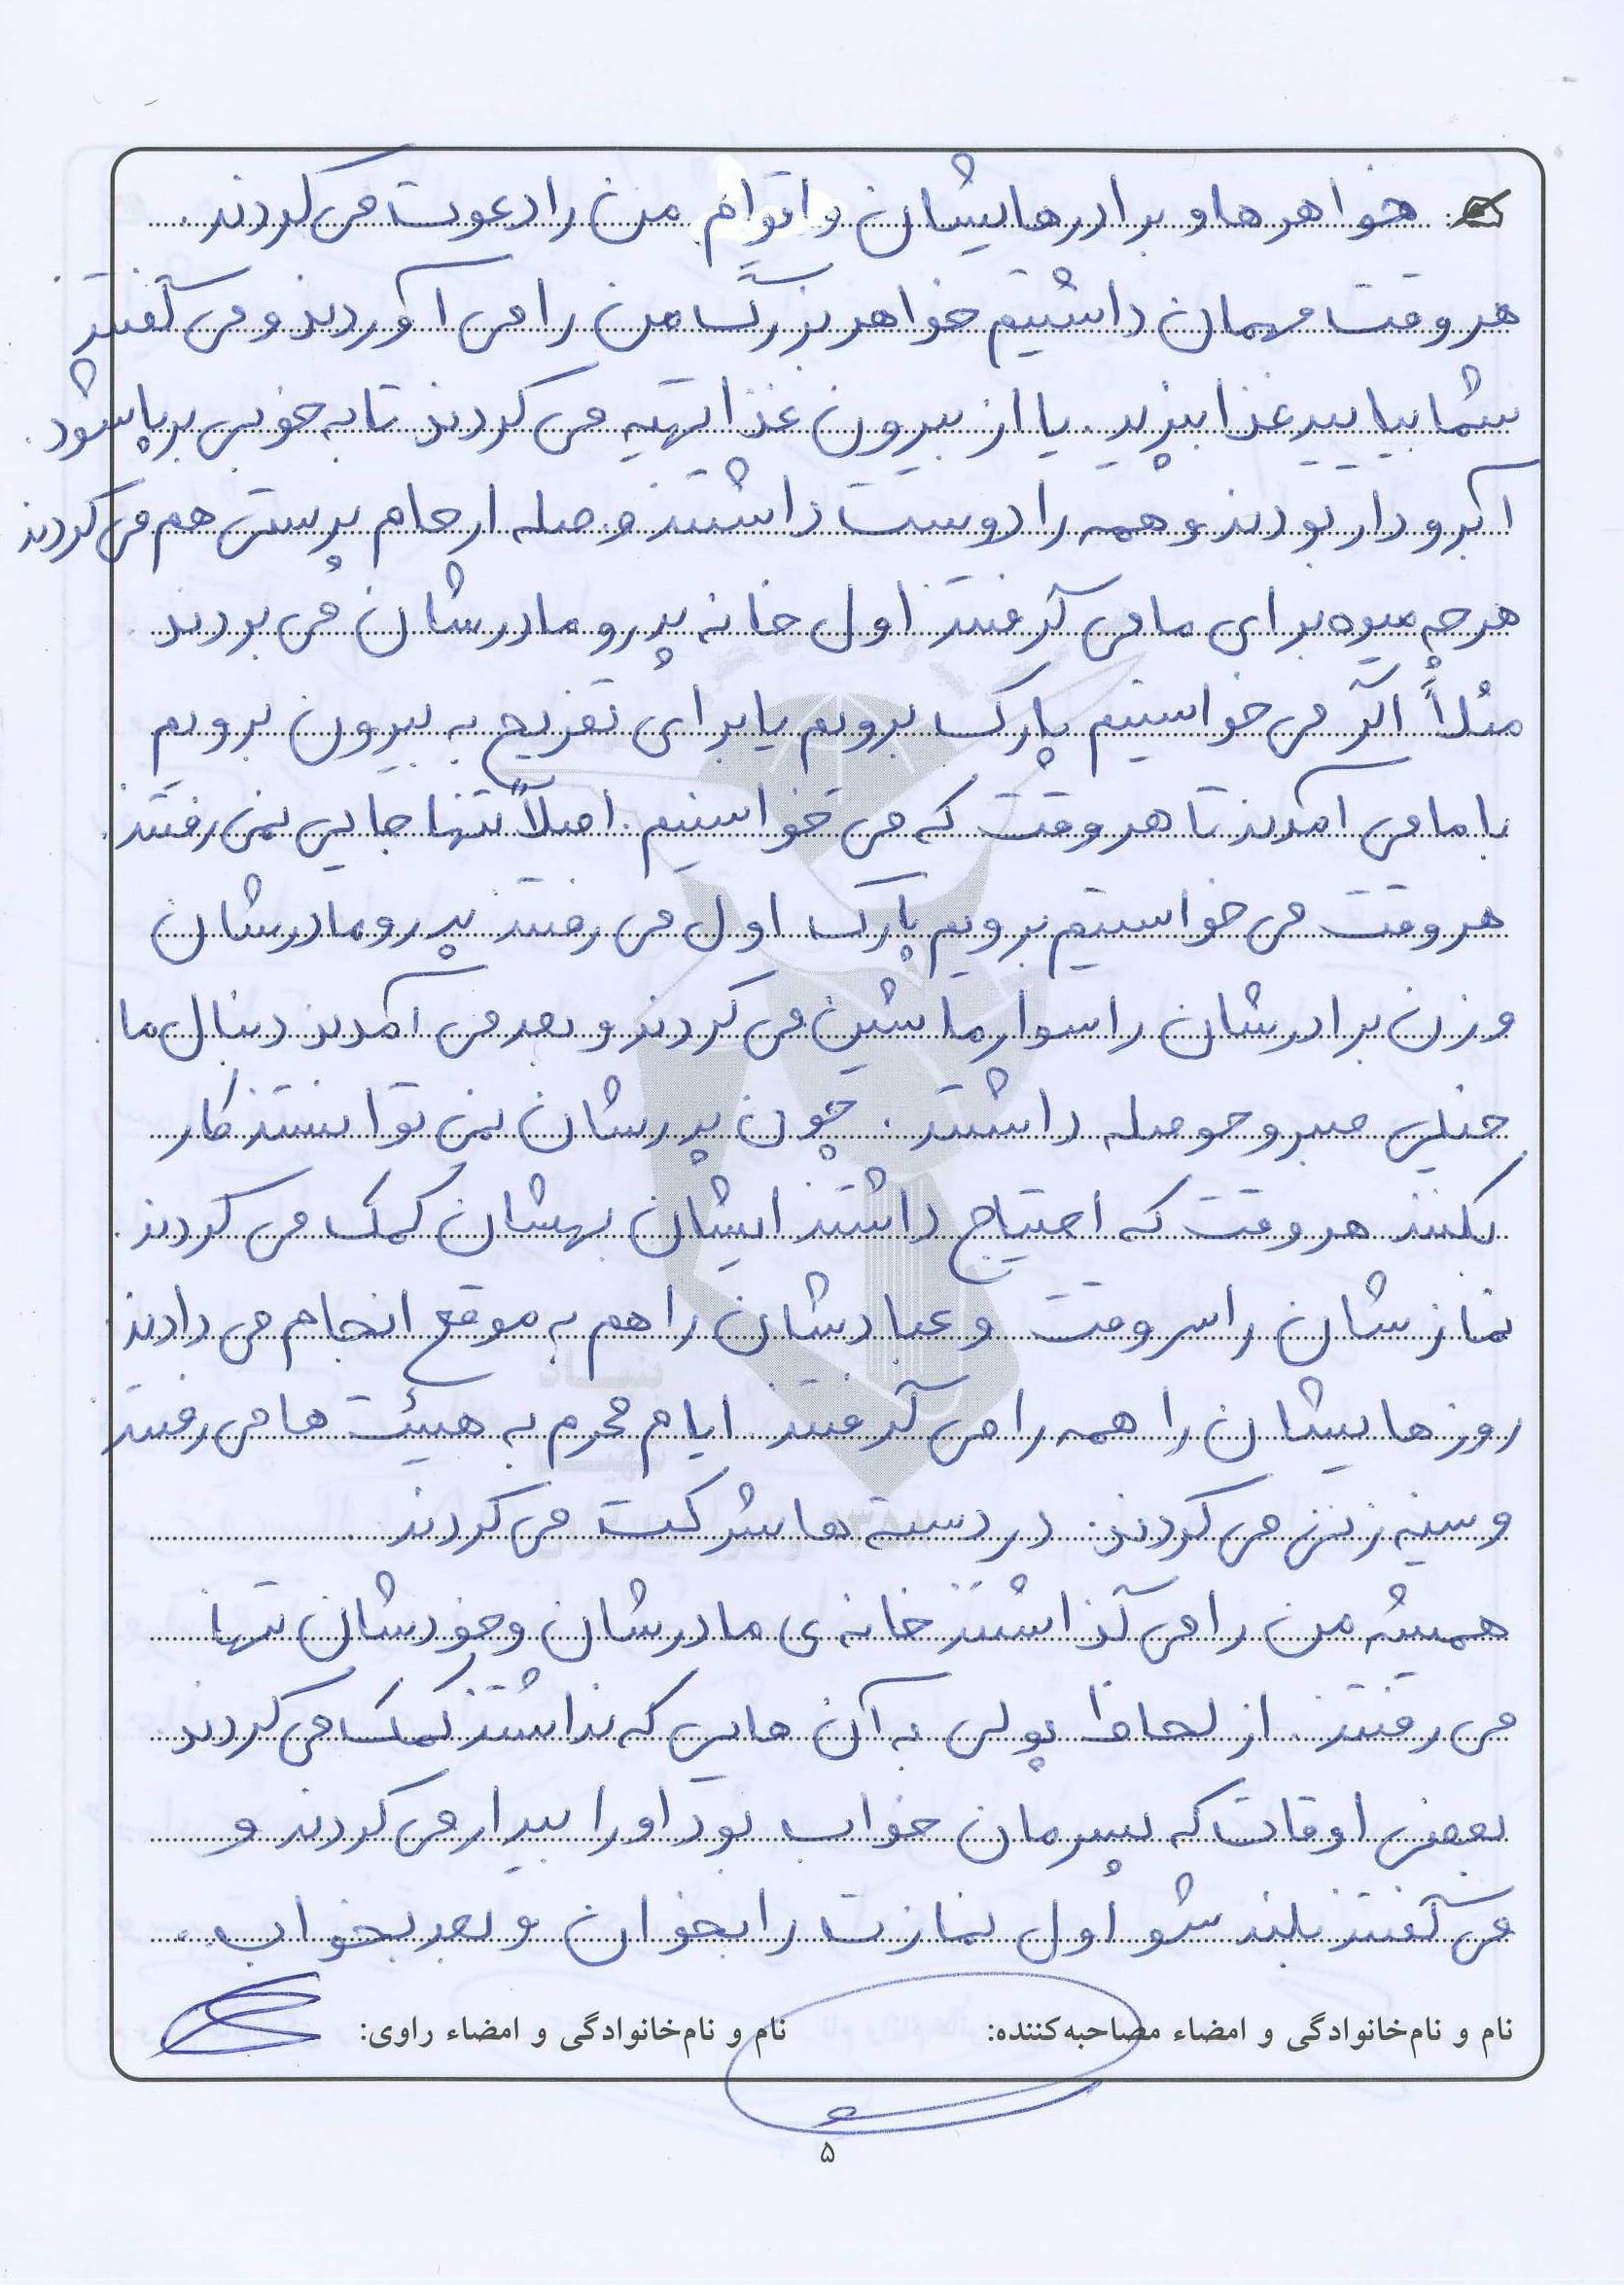 خواهرها و برادرهایشان و اقوام من را دعوت می کردند.
هر وقت مهمان داشتیم خواهر بزرگ من را می آوردند و می گفتند
شما بیایید غذا بپزید. یا از بیرون غذا تهیه می کردند تا به خوبی برپا شود.
آبرو دار بودند و همه را دوست داشتند و صله ارحام پرستی هم می کردند
هر چه میوه برای ما می گرفتند اول خانه پدر و مادرشان می بردند.
مثلاً اگر می خواستیم پارک برویم یا برای تفریح به بیرون برویم
با ما می آمدند تا هر وقت که می خواستیم. اصلاً تنها جایی نمی رفتند.
هر وقت می خواستیم برویم پارک اول می رفتند پدر و مادرشان
و زن برادرشان را سوار ماشین می کردند و بعد می آمدند دنبال ما.
خیلی صبر و حوصله داشتند. چون پدرشان نمی توانستند کار
بکنند هر وقت که احتیاج داشتند ایشان بهشان کمک می کردند.
نمازشان را سر وقت و عبادتشان را هم به موقع انجام می دادند.
روزهایشان را همه را می گرفتند. ایام محرم به هیئت ها می رفتند
و سینه زنی می کردند. در دسته ها شرکت می کردند.
همیشه من را می گذاشتند خانه ی مادرشان و خودشان تنها
می رفتند. از لحاظ پولی به آن هایی که نداشتند کمک می کردند.
بعضی اوقات که پسرمان خواب بود او را بیدار می کردند و
می گفتند بلند شو اول نمازت را بخوان و بعد بخواب.
نام و نام‌خانوادگی و امضاء مصاحبه‌کننده: نام و نام‌خانوادگی و امضاء راوی:
۵